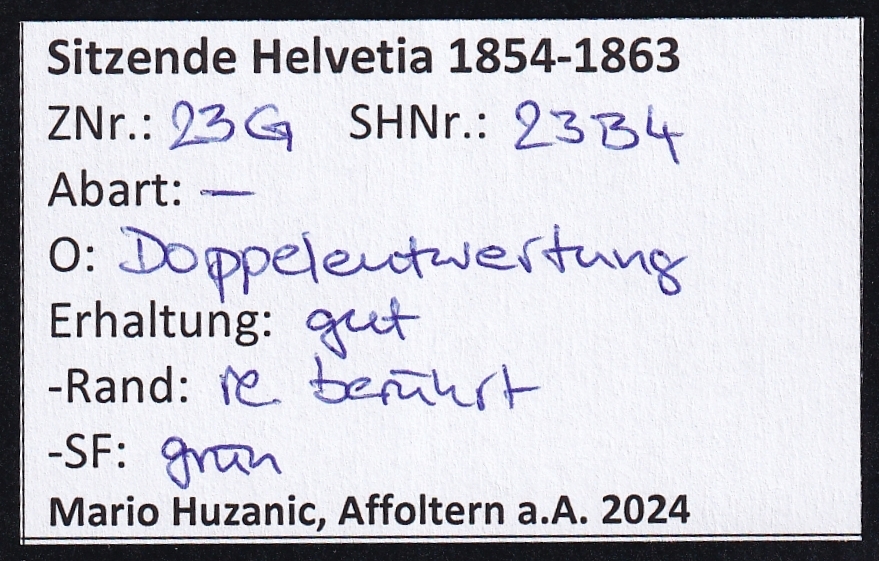 Sitzende Helvetia 1854-1863
ZNr.: 23G SHNr.: 23B4
Abart: —
O: Doppelentwertung
Erhaltung: gut
-Rand: re. berührt
-SF: grün
Mario Huzanic, Affoltern a.A. 2024